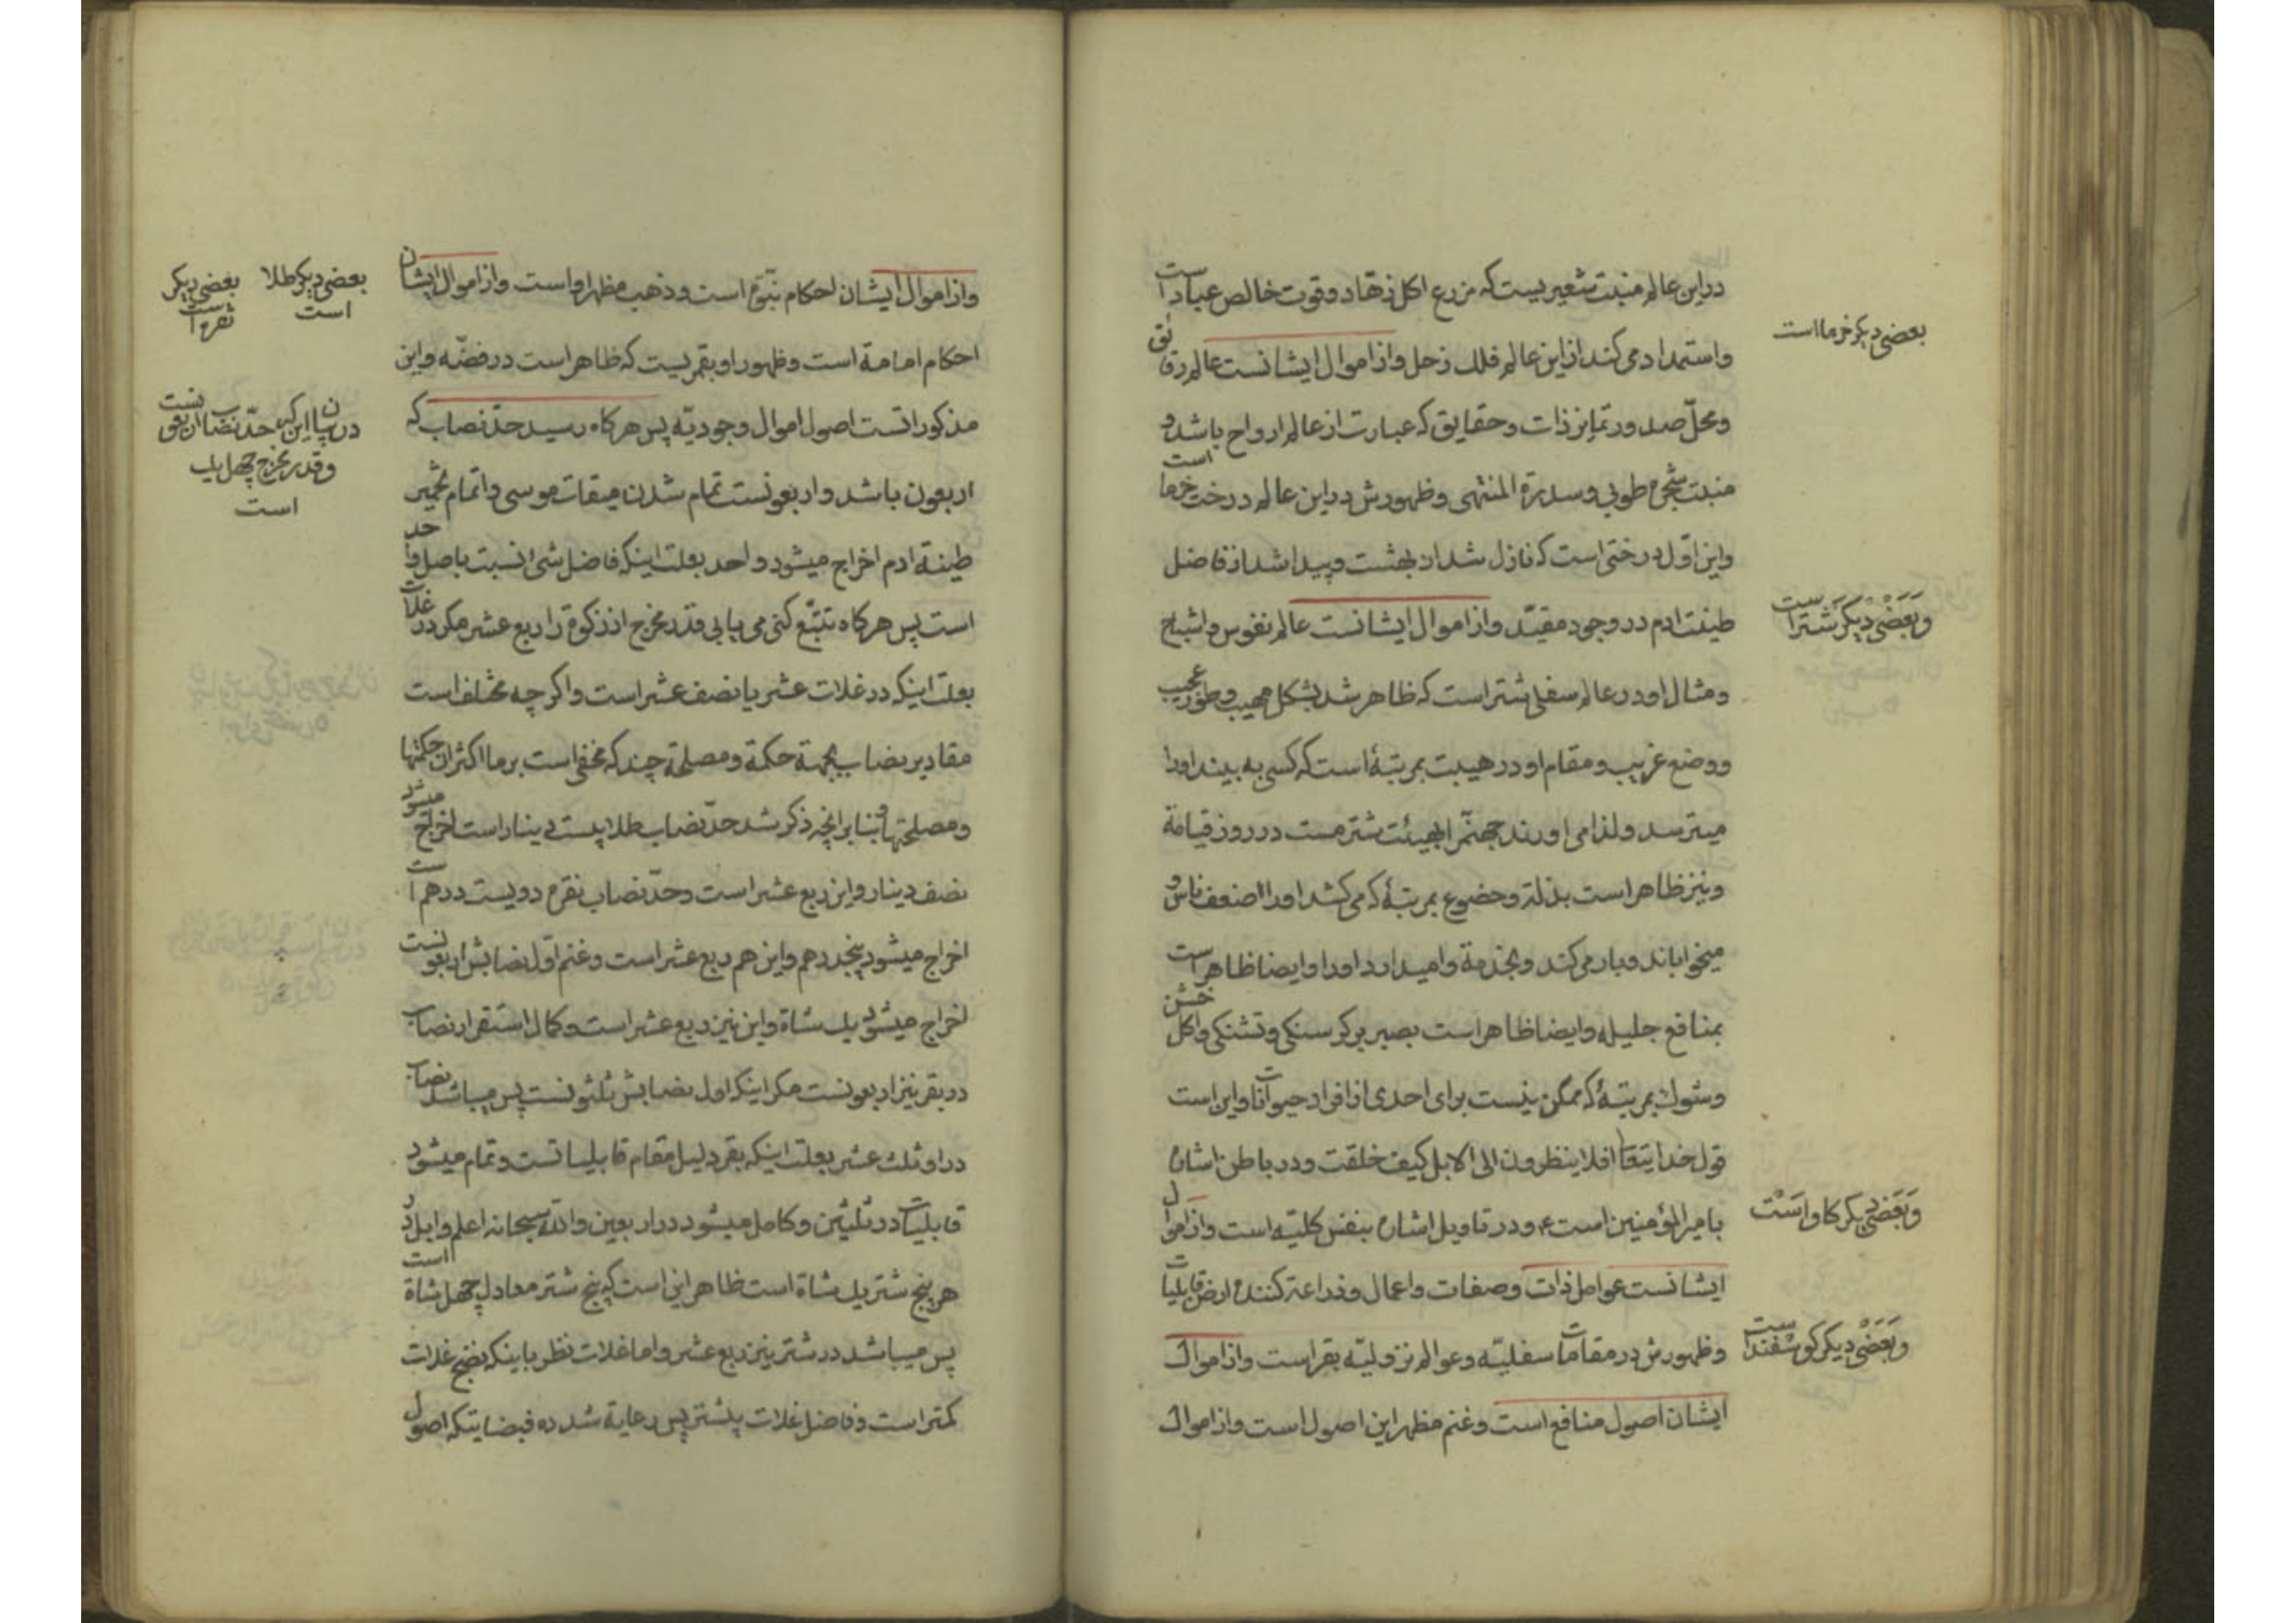 دراین عالم منبت شعیریست که مزرع اکل زهّاد و قوت خالص عباد است
بعضی دیکر خرما است
واستمداد می کند از این عالم فلک زحل واز اموال ایشانست عالم رقائق
ومحلّ صدور تمایز ذات وحقایق که عبارت از عالم ارواح باشد و
منبت شجرهٔ طوبی وسدرة المنتهی وظهورش دراین عالم درخت خرما است
واین اوّل درختی است که نازل شد از بهشت وپیدا شد از فاضل
طینت ادم در وجود مقیّد واز اموال ایشانست عالم نفوس و اشباح
وبَعَضَی دیکَر شتر است
ومثال او در عالم سفلی شتر است که ظاهر شد بشکل مهیب وطور عجیب
ووضع غریب ومقام او در هیبت بمرتبهٔ است که کسی به بیند اورا
میترسد ولذا می اورند جهنّم را بهیئت شتر مست در روز قیامة
ونیز ظاهر است بذلة وخضوع بمرتبهٔ که می کشد اورا اضعف ناس و
میخواباند وبار می کند وبخدمة وامیدارد اورا وایضا ظاهر است
بمنافع جلیله وایضا ظاهر است بصبر بر کرسنکی وتشنکی واکل خشن
وشوک بمرتبهٔ که ممکن نیست برای احدی از افراد حیوانات واین است
قول خدایتعا افلا ینظرون الی الابل کیف خلقت ودر باطن اشاره
بامیر المؤمنین است ع ودر تاویل اشاره بنفس کلیّه است واز اموال
وبَعَضَی دیکر کاو اَسَت
ایشانست عوامل ذات وصفات واعمال وزراعة کننده ارض قابلیات
وظهورش در مقامات سفلیّه وعوالم نزولیّه بقر است واز اموال
وبَعَضَی دیکر کوسفند است
ایشان اصول منافع است وغنم مظهر این اصول است واز اموال
واز اموال ایشان احکام نبوّة است وذهب مظهر او است واز اموال ایشان
بعضی دیکر طلا است
بعضی دیکر نقره است
احکام امامة است وظهور او بقمریست که ظاهر است در فضّه واین
مذکوراتست اصول اموال وجودیّه پس هرکاه رسید حدّ نصاب که
در بیان این که حدّ نصاب اربعونست
وقدر مخرج چهل یک
است
اربعون باشد واربعونست تمام شدن میقات موسی واتمام تخمیر
طینة ادم اخراج میشود واحد بعلت اینکه فاضل شیء نسبت باصل واحد
است پس هرکاه تتبّع کنی می یابی قدر مخرج از زکوة را ربع عشر مکر در غلات
بعلت اینکه در غلات عشر یا نصف عشر است واکرچه مختلف است
مقادیر نصاب بجهة حکمة ومصلحة چند که مخفی است بر ما اکثر ان حکمتها
ومصلحتها و بنا برانچه ذکر شد حدّ نصاب طلا بیست دینار است اخراج میشود
نصف دینار واین ربع عشر است وحدّ نصاب نقره دویست درهم است
اخراج میشود پنجدرهم واین هم ربع عشر است وغنم اوّل نصابش اربعونست
اخراج میشود یک شاة واین نیز ربع عشر است وکمال استقرار نصاب
در بقر نیز اربعونست مکر اینکه اول نصابش ثلثونست پس میباشد نصاب
در او ثلث عشر بعلت اینکه بقر دلیل مقام قابلیاتست وتمام میشود
قابلیات در ثلثین وکامل میشود در اربعین والله سبحانه اعلم وابل در
هر پنج شتر یک شاة است ظاهر این است که پنج شتر معادل چهل شاة است
پس میباشد در شتر نیز ربع عشر واما غلات نظر باینکه نضج غلات
کمتر است وفاضل غلات بیشتر پس رعایة شده فیضا بتکه اصول